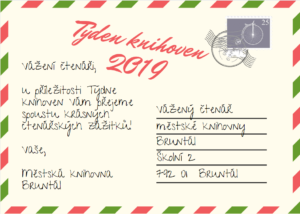 Týden knihoven
2019
25
Vážení čtenáři,
u příležitosti Týdne
knihoven Vám přejeme
spoustu krásných
čtenářských zážitků!
Vaše,
Městská knihovna
Bruntál
Vážený čtenář
městské knihovny
Bruntál
Školní 2
792 01 Bruntál